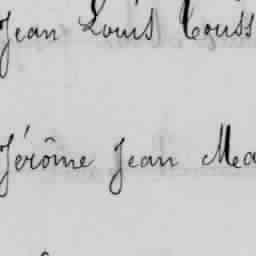 Jean Louis Touss
Jérôme Jean Mea